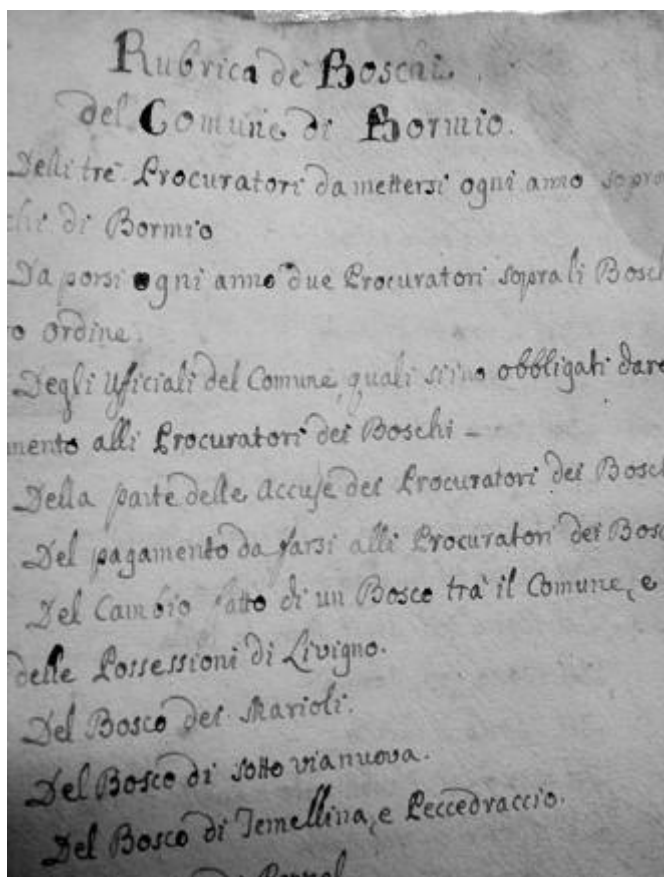 Rubrica de Boschi
del Comune di Bormio.
Delli tre Procuratori da mettersi ogni anno sopra
chi di Bormio
Da porsi ogni anno due Procuratori sopra li Bosch
ro ordine.
Degli Ufficiali del Comune, quali siino obbligati dare
mento alli Procuratori dei Boschi -
Della parte delle Accuse dei Procuratori dei Bosch
Del pagamento da farsi alli Procuratori dei Bosc
Del Cambio fatto di un Bosco trà il Comune, e
delle Possessioni di Livigno.
Del Bosco dei Marioli.
Del Bosco di sotto vianuova.
Del Bosco di Temellina, e Peccedraccio.